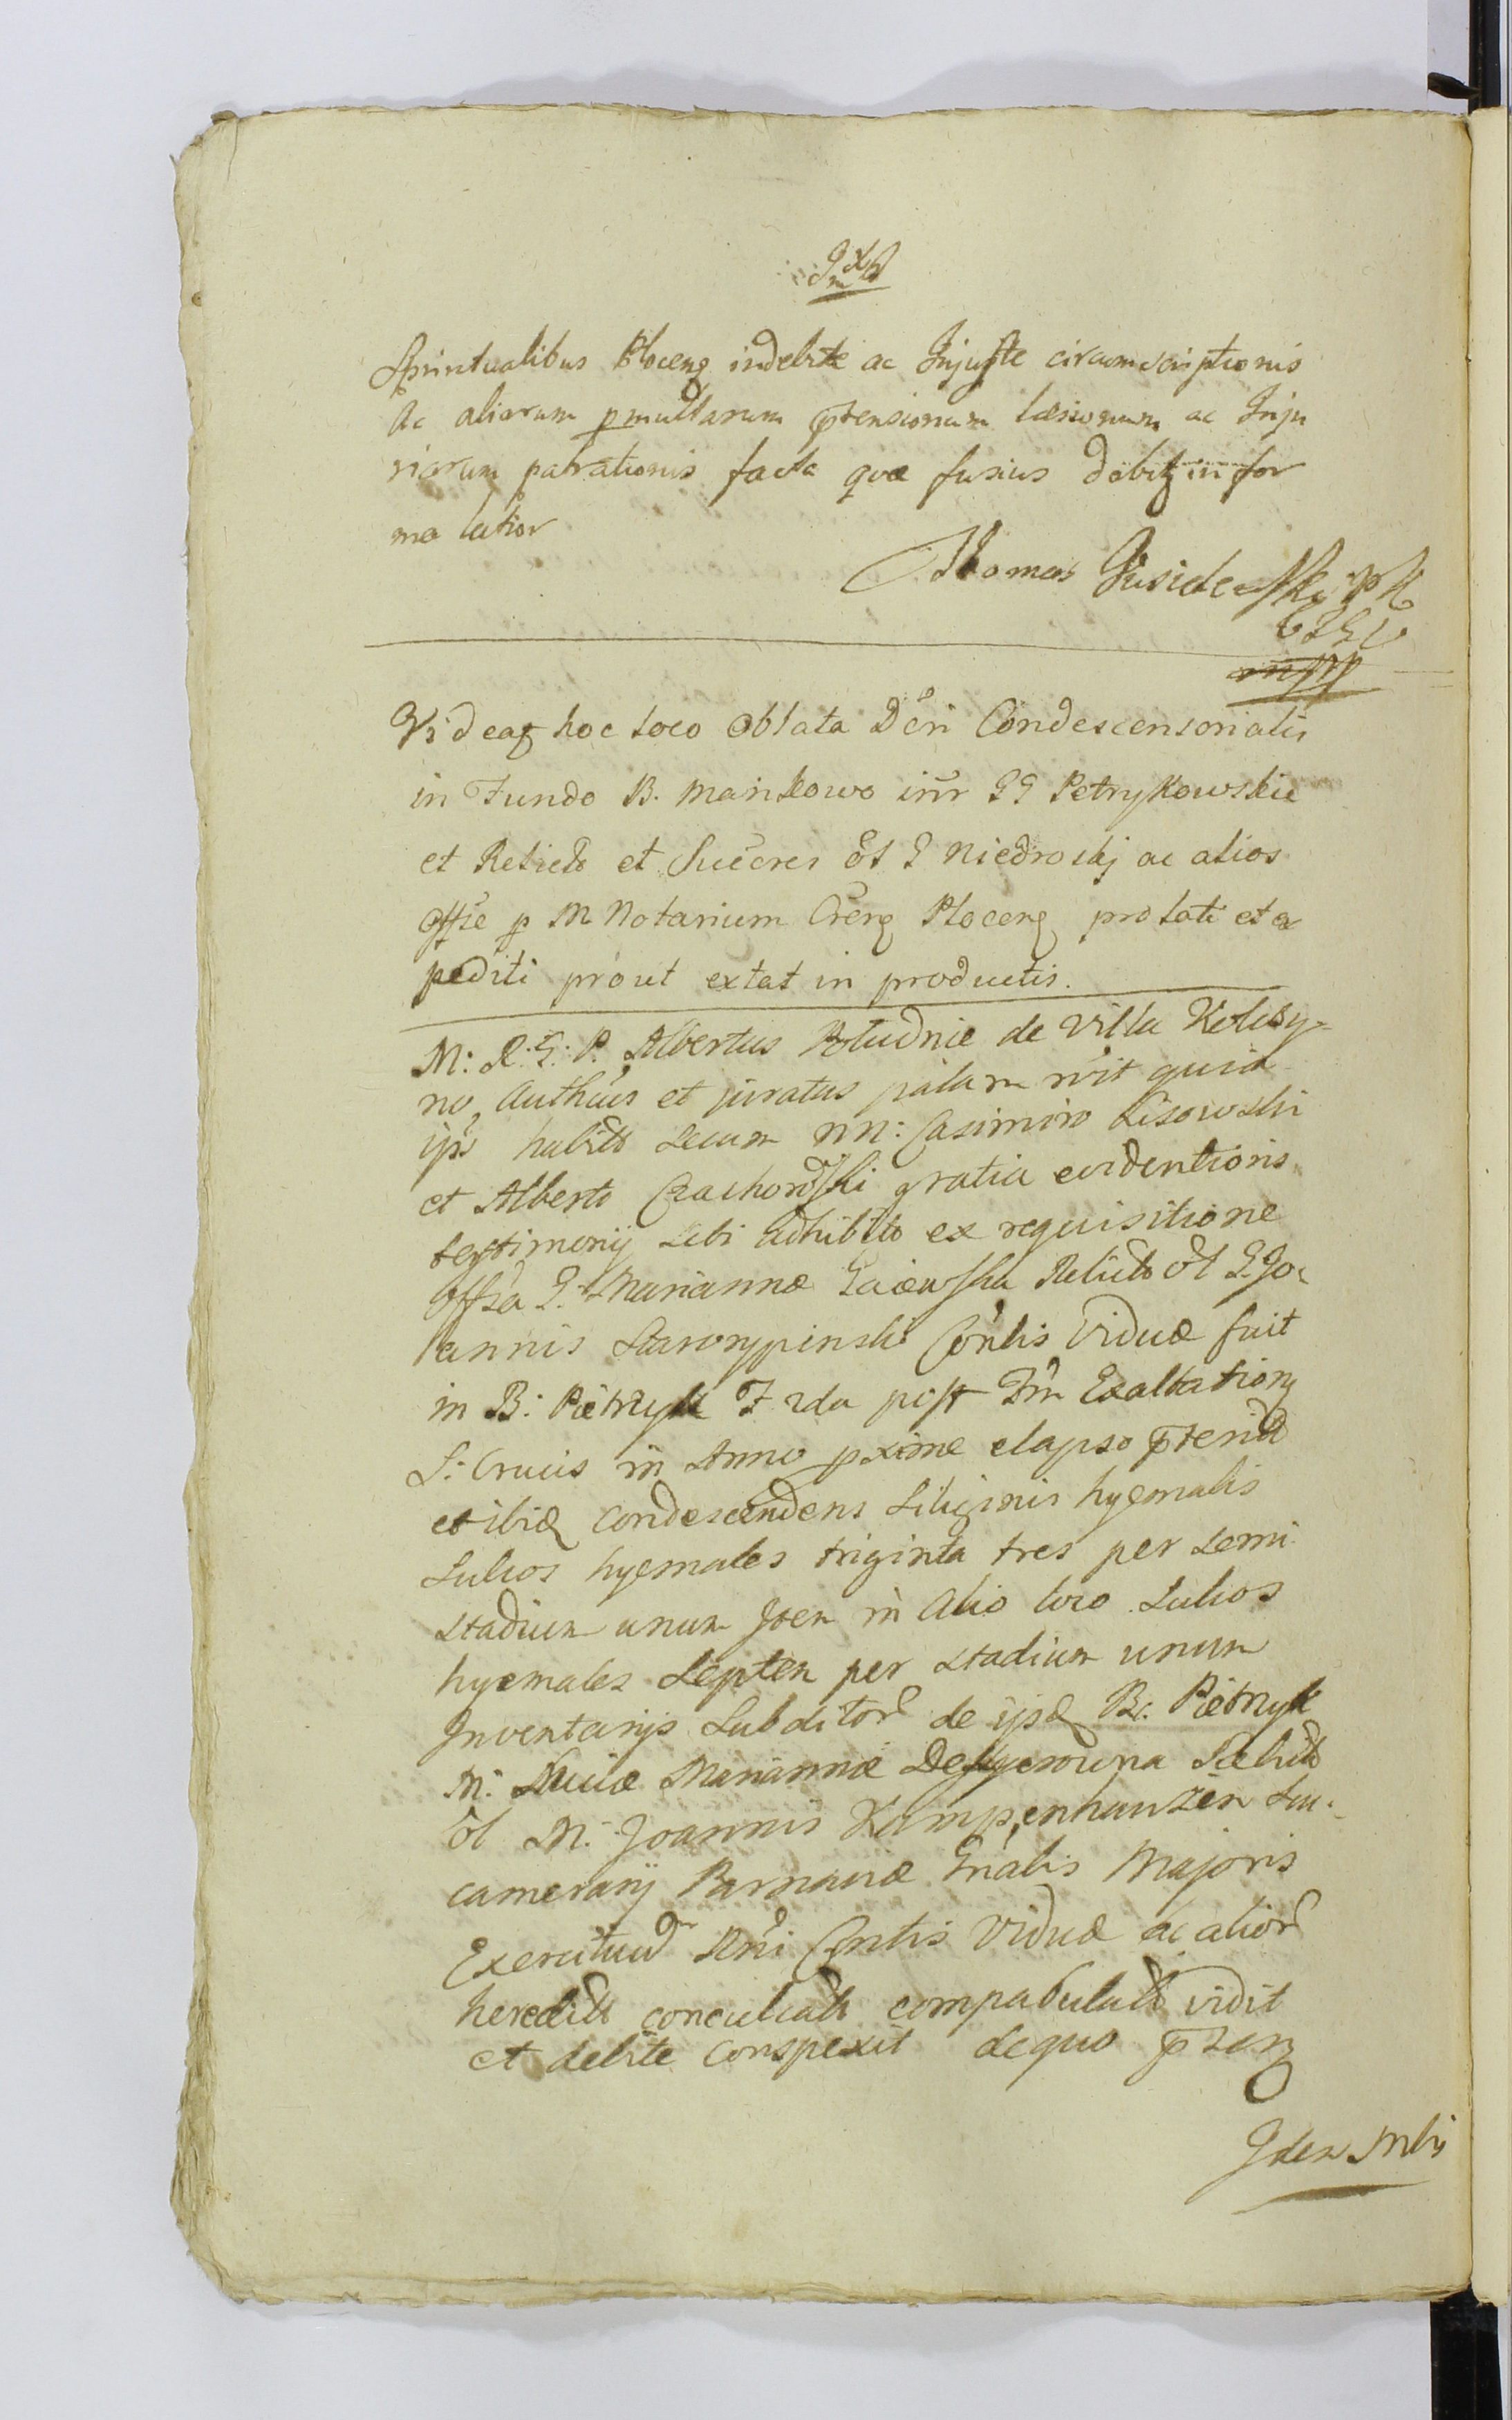 Spiritualibus Ploceng indebite ac Injuste circumscriptionis
Ac aliarum pmultarum ptensionum læsionum ac Inju
riarum patrationis facta quæ fusius dabitz in for
ma latior
Thomas
Videatz hoc loco Oblata Dčri Condescensorialis
in Fundo B. Mańkowo inr GG Petrykowskie
et Relicto et Succres Ol G Niedroskj ac alios
Offse p M Notarium Cřeng Ploceng prolati et ex
pediti prout extat in productis.
M: R: G: P. Albertus Południe de Villa Koloży-
no, Authčus et juratus palam rvit quia
ips habito secum NN: Casimiro Lisowski
et Alberto Czachorowski gratia evidentioris
testimonij sibi adhibito ex requisitione
Offsa G. Mariannæ Gaiewska Relicto Ol G. Jo-
annis Starorypinski Cońlis Viduæ fuit
in B: Pietrzyk F. 2da post Fm Exaltationg
S: Crucis in Anno pxime elapso pterito
et ibiq condescendens Siliginis hyemalis
Sulcos hyemales triginta tres per semi
stadium unum Item in Alio loco Sulcos
hyemales Septem per stadium unum
Inventarijs Subditor de ijsd B. Pietrzyk
M: Mariannæ Relicto
ol M. Joannis Kampenhauzen Suc-
camerarij Parnaviæ Gnalis Majoris
Exercituum Rni Cońlis Viduæ ac alior
heredit conculcats compabulats vidit
et debite conspexit dequo
Idem Mlis